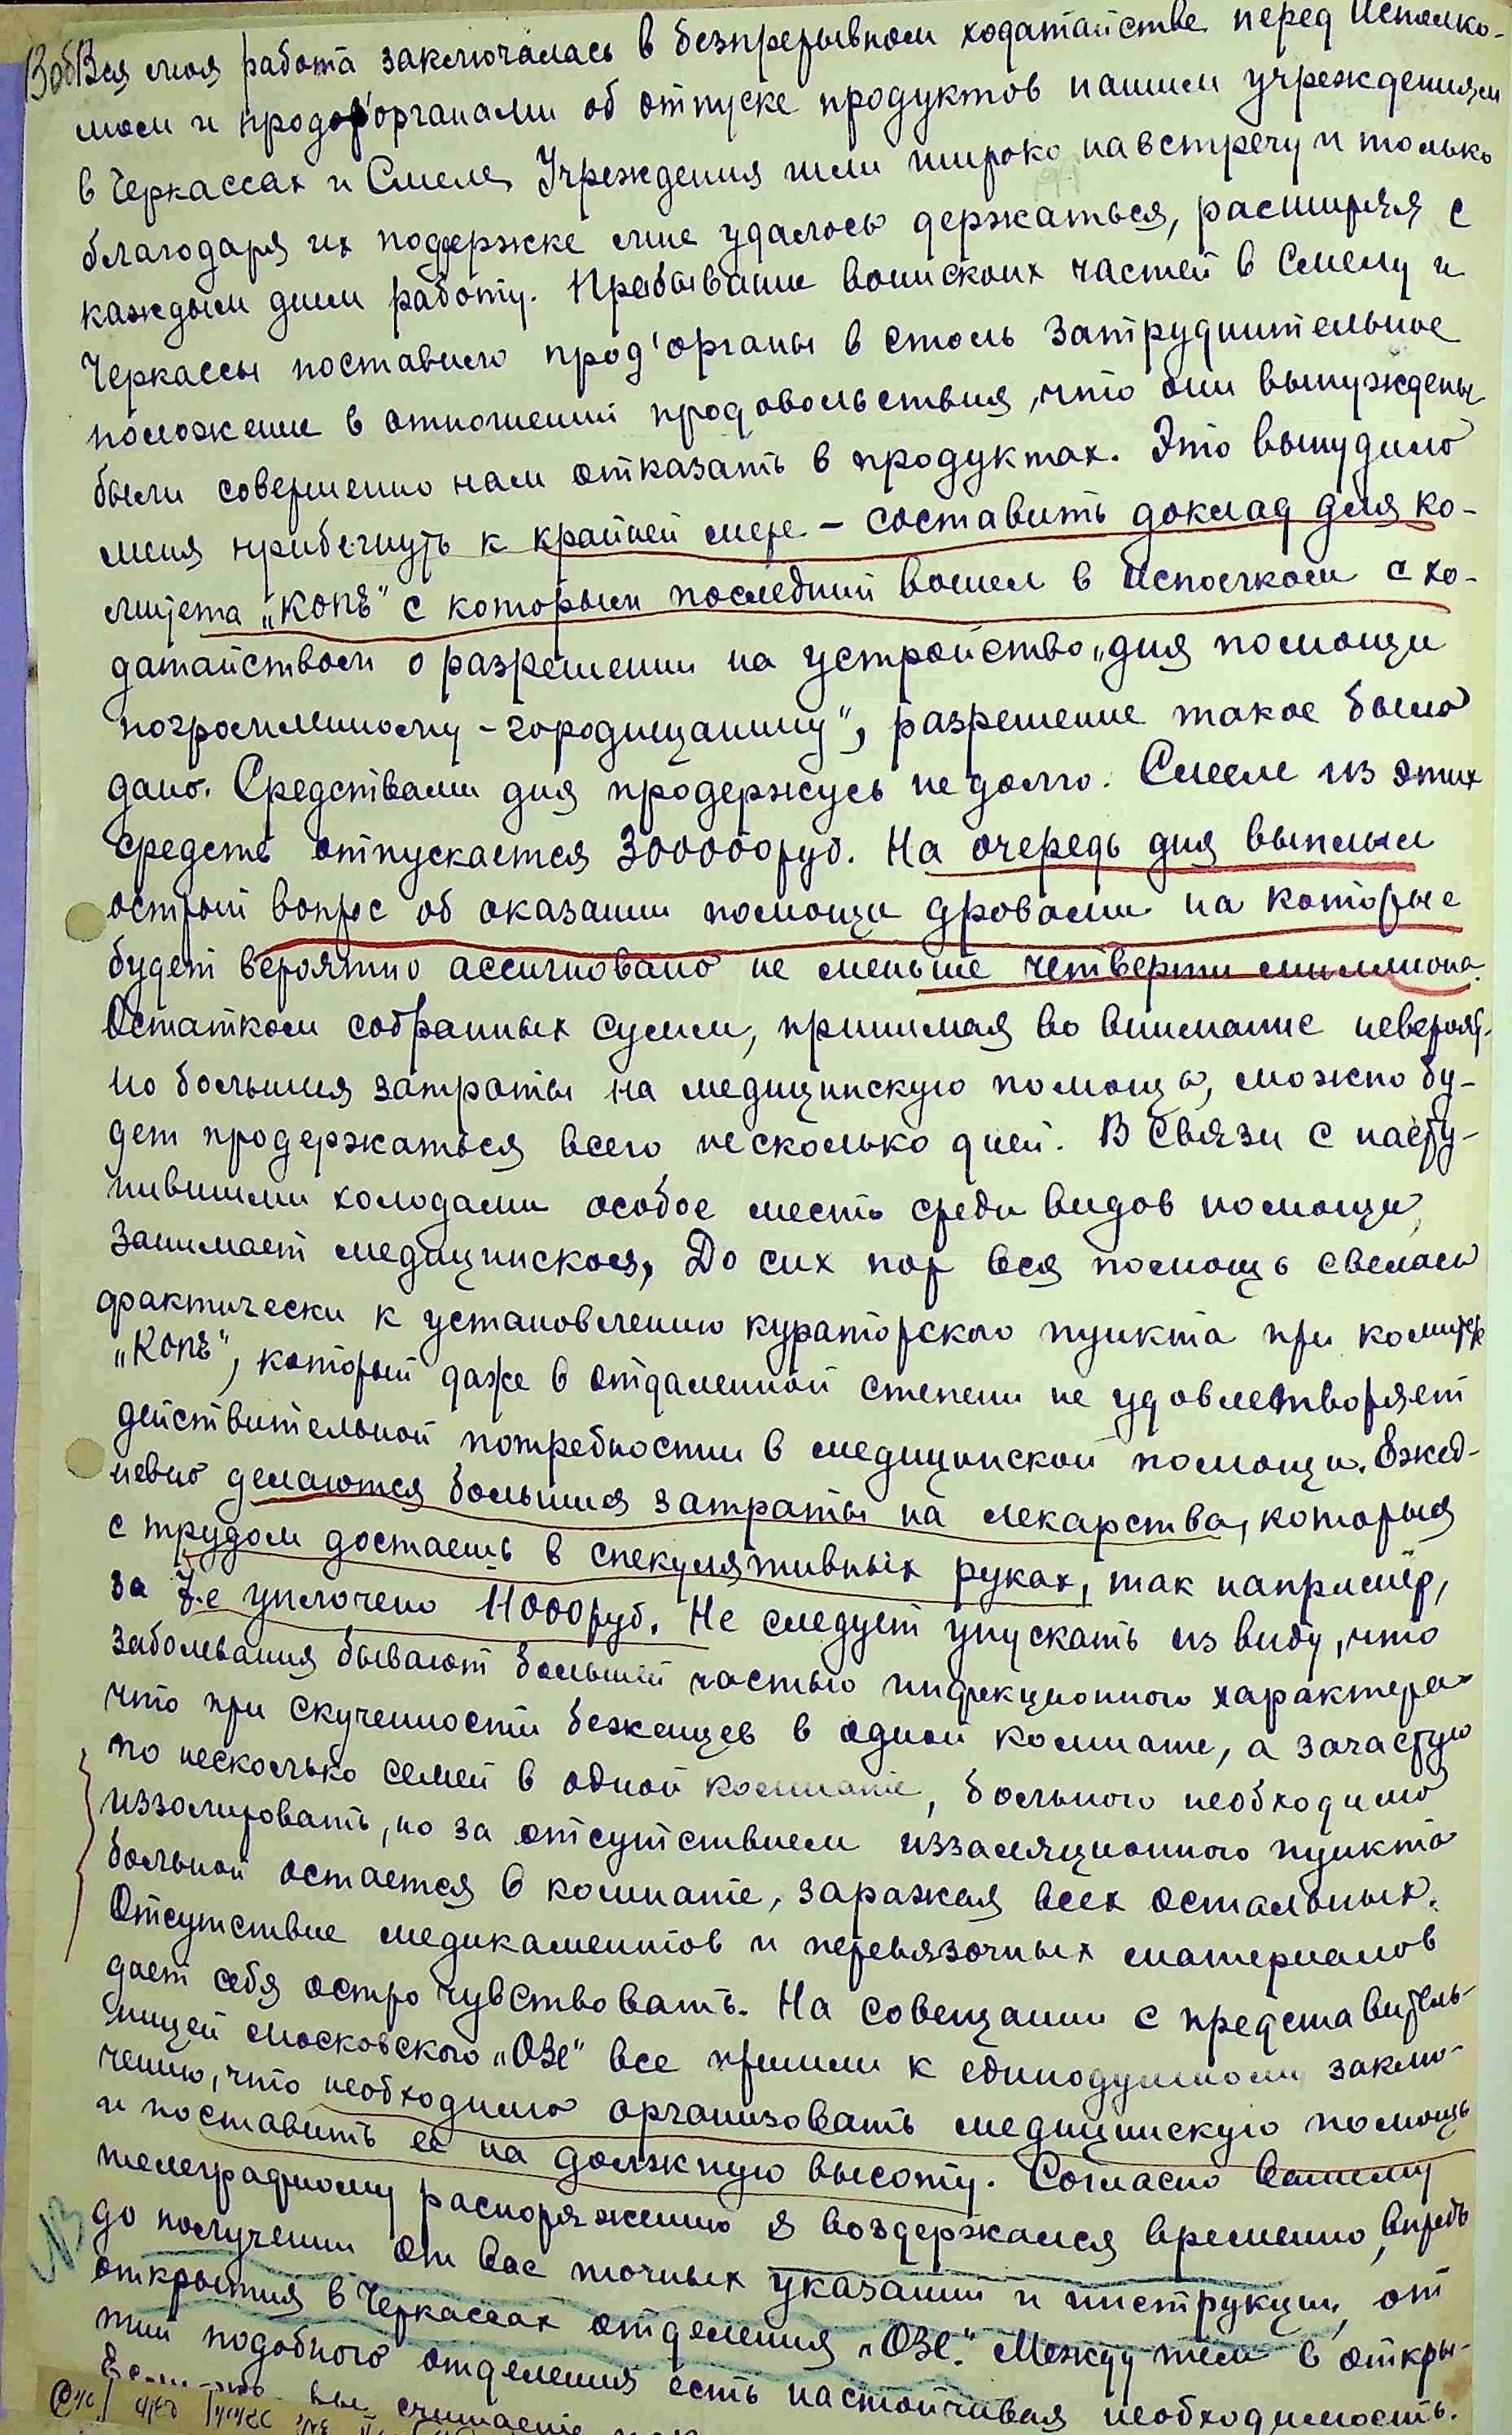 13об Вся моя работа заключалась в безпрерывном ходатайстве перед Исполко-
мом и продор'органами об отпуске продуктов нашим учреждениям
в Черкассах и Смеле, Учреждения шли широко навстречу и только
благодаря их поддержке мне удалось держаться, расширяя с
каждым днем работу. Пребывание воинских частей в Смелу и
Черкассы поставило прод'органы в столь затруднительное
положение в отношении продовольствия, что они вынуждены
были совершенно нам отказать в продуктах. Это вынудило
меня прибегнуть к крайней мере – составить доклад для ко-
митета „Копе" с которым последний вошел в исполком с хо-
датайством о разрешении на устройство „дня помощи
погромленному - городищанину", разрешение такое было
дано. Средствами дня продержусь недолго. Смеле из этих
средств отпускается 300000руб. На очередь дня выплыл
острый вопрос об оказании помощи дровами на которые
будет вероятно ассигновано не меньше четверти миллиона.
Остатком собранных сумм, принимая во внимание невероят-
но большия затраты на медицинскую помощь, можно бу-
дет продержаться всего несколько дней. В связи с насту-
пившими холодами особое место среди видов помощи
занимает медицинская, До сих пор вся помощь свелась
фактически к установлению кураторского пункта при комитете
„Копе", который даже в отдаленной степени не удовлетворяет
действительной потребности в медицинской помощи. Ежед-
невно делаются большия затраты на лекарства, которыя
с трудом достаешь в спекулятивных руках, так например,
за уплочено 11000руб. Не следует упускать из виду, что
заболевания бывают большей частью инфекционного характера
что при скученности беженцев в одной комнате, а зачастую
по несколько семей в одной комнате, больного необходимо
иззолировать, но за отсутствием иззаляционного пункта
больной остается в комнате, заражая всех остальных.
Отсутствие медикаментов и перевязочных материалов
дает себя остро чувствовать. На совещании с представитель-
ницей московского „ОЗЕ" все пришли к единодушному заклю-
чению, что необходимо организовать медицинскую помощь
и поставить ее на должную высоту. Согласно Вашему
телеграфному распоряжению я воздержался временно, впредь
до получения от Вас точных указаний и инструкции, от
открытия в Черкассах отделения „ОЗЕ". Между тем в откры-
тии подобного отделения есть настойчивая необходимость.
вы считаете